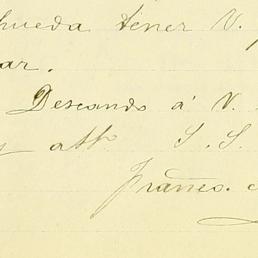 pueda tener V. p
ar.
Deseando á V.
y att. S. S.
Franco.